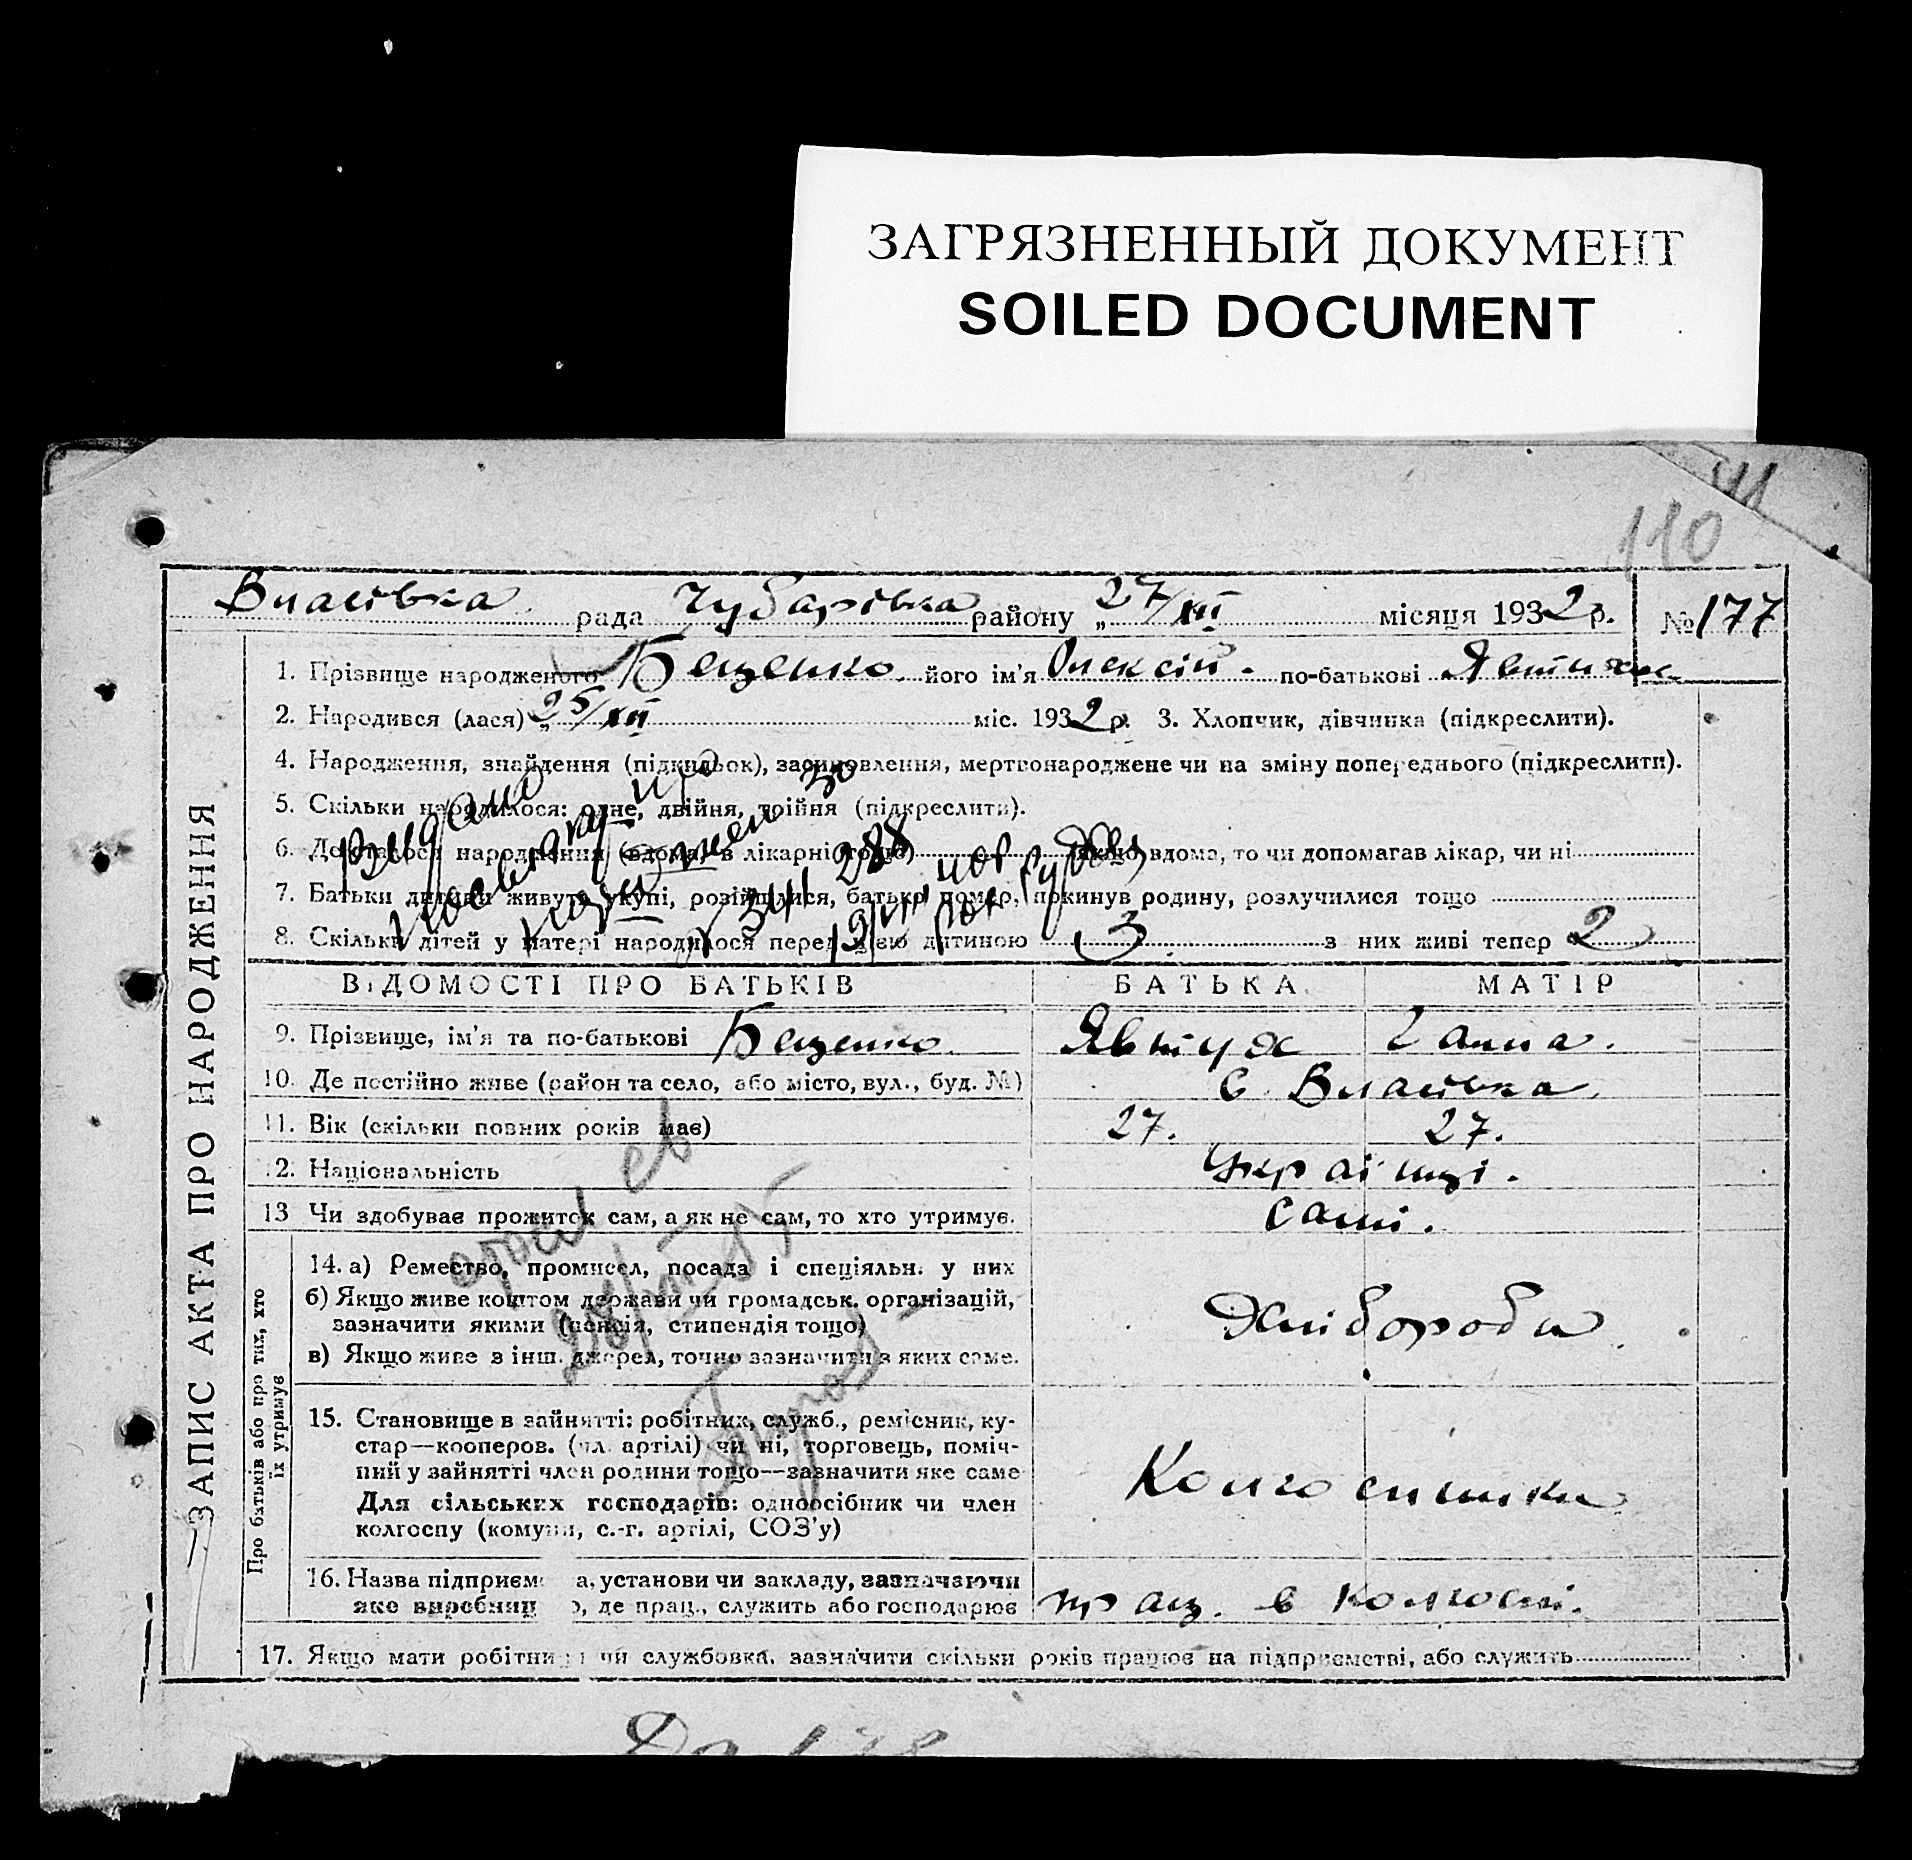 ЗАГРЯЗНЕННЫЙ ДОКУМЕНТ
SOILED DOCUMENT
110
Власівка рада Чубарівка району „27/XII місяця 1932 р. № 177
ЗАПИС АКТА ПРО НАРОДЖЕННЯ
1. Прізвище народженого Бещенко його ім'я Олексій. по-батькові
2. Народився (лася) „25/XII міс. 1932 р. 3. Хлопчик, дівчинка (підкреслити).
4. Народження, знайдення (підкидьок), засиновлення, мертвонароджене чи на зміну попереднього (підкреслити).
5. Скільки народилося: одне, двійня, трійня (підкреслити).
6. Де сталося народження (вдома, в лікарні тощо) якщо вдома, то чи допомагав лікар, чи ні
7. Батьки дитини живуть укупі, розійшлися, батько помер, покинув родину, розлучилися тощо
8. Скільки дітей у матері народилося перед цією дитиною 3 з них живі тепер 2
Видано
288
ВІДОМОСТІ ПРО БАТЬКІВ БАТЬКА МАТІР
9. Прізвище, ім'я та по-батькові Бещенко Явтух Ганна.
10. Де постійно живе (район та село, або місто, вул., буд. №) с. Власівка.
11. Вік (скільки повних років має) 27. 27.
12. Національність Українці.
13 Чи здобуває прожиток сам, а як не сам, то хто утримує. Самі.
Про батьків або про тих, хто
їх утримує
14. а) Ремество, промисел, посада і спеціяльн. у них
б) Якщо живе коштом держави чи громадськ. організацій,
зазначити якими (пенсія, стипендія тощо)
в) Якщо живе з інш. джерел, точно зазначити з яких саме.
Хлібороби
15. Становище в зайнятті: робітник, служб., ремісник, ку-
стар—кооперов. (чл. артілі) чи ні, торговець, поміч-
ний у зайнятті член родини тощо—зазначити яке саме
Для сільських господарів: одноосібник чи член
колгоспу (комуни, с.-г. артілі, СОЗ'у)
Колгоспники
16. Назва підприєм а, установи чи закладу, зазначаючи
яке виробниц о, де прац., служить або господарює
прац. в колгоспі.
17. Якщо мати робітни чи службовка, зазначити скільки років працює на підприємстві, або служить